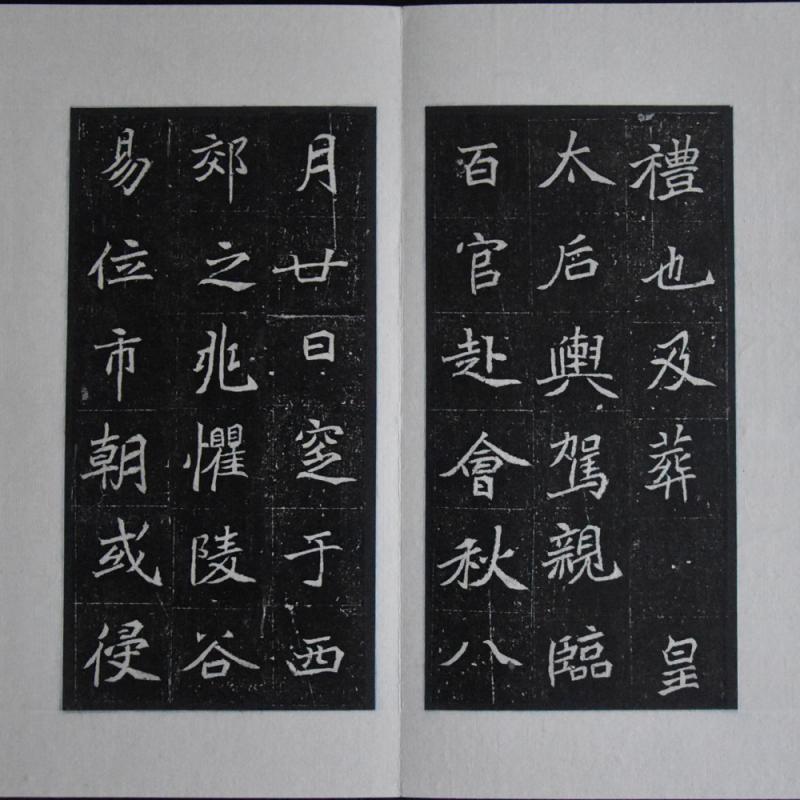 禮也及葬 皇
太后輿駕親臨
百官赴會秋八
月廿日窆于西
郊之兆懼陵谷
易位市朝或侵